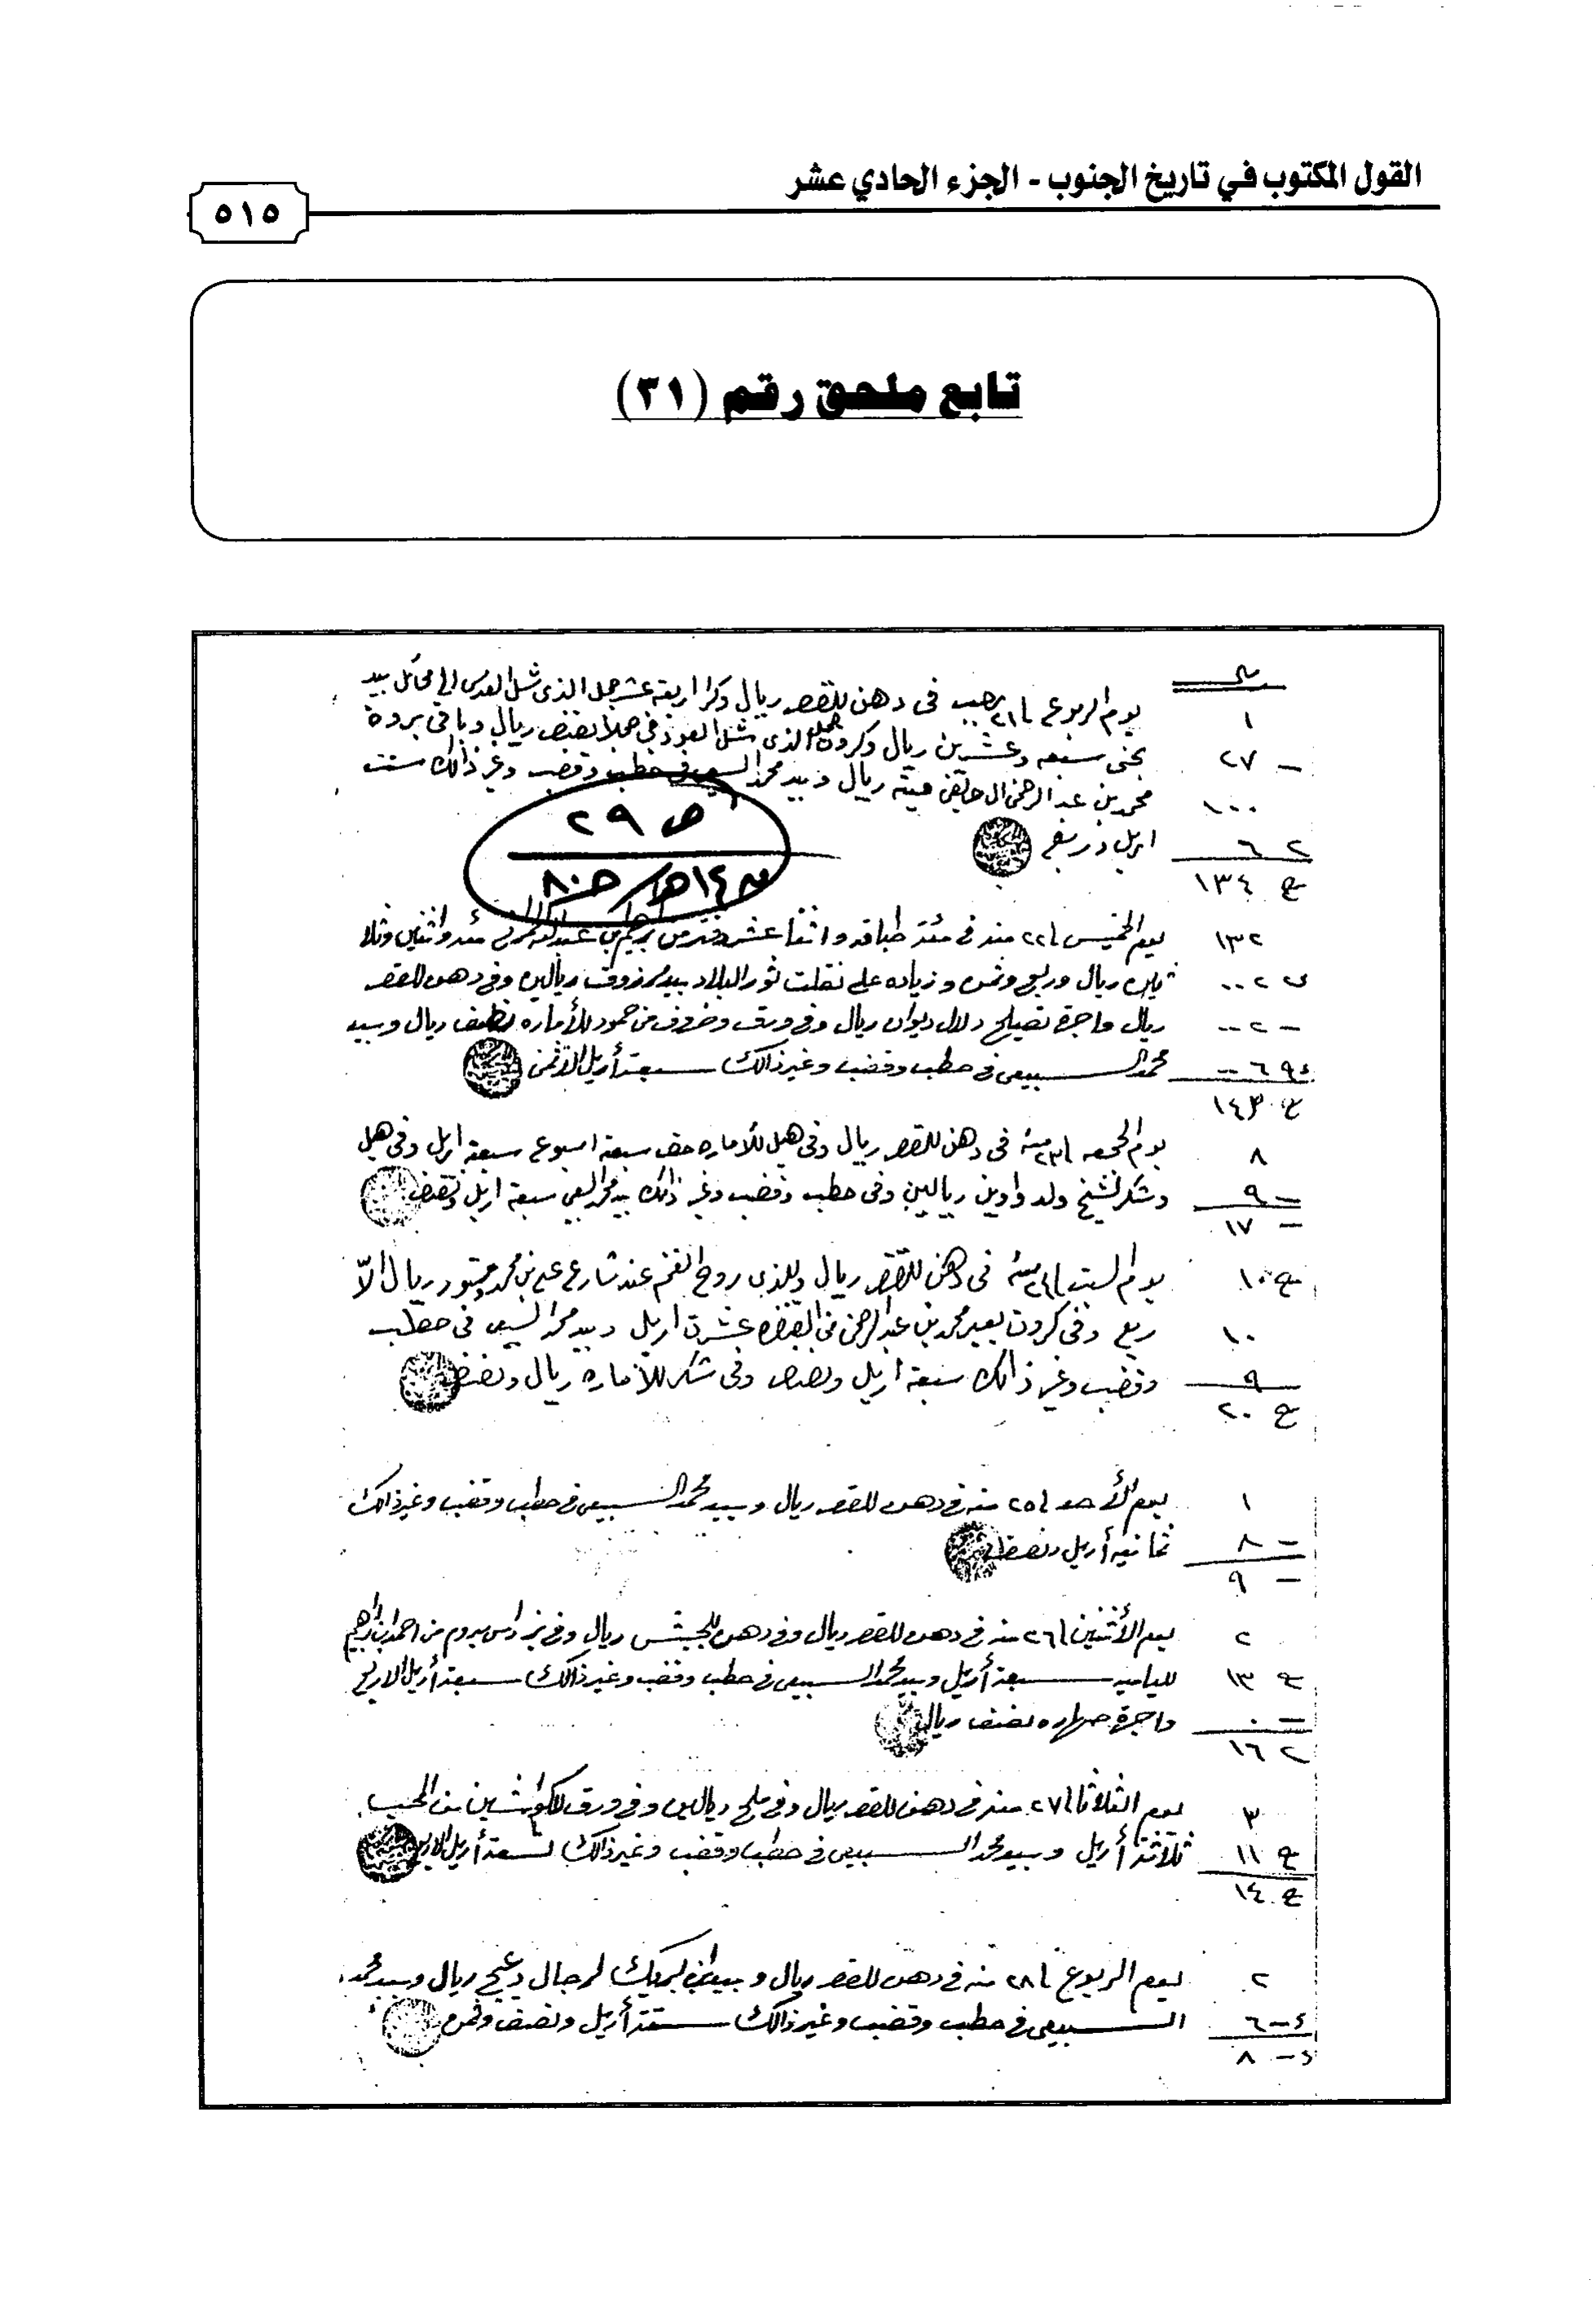 القول المكتوب في تاريخ الجنوب - الجزء الحادي عشر
٥١٥
تابع ملحق رقم (٣١)
١ يوم الربوع ٢١ رجب في دهن للقصر ريال وكرا اربعة عشر جمل الذي شل العدس الى محائل بيد
٢٧ سبعه وعشرين ريال الذي شل ريال وباقي بروة
١٠٠ محمد بن عبد الرحمن ميته ريال وبيد محمد السبيعي في حطب وقضب وغير ذالك ست
٦ اريل وربع
١٣٤
ص ٢٩
١٣٢ يوم الخميس ٢٢ منه في مئة طباقه واثنا عشر مئه واثنين وثلا
٢ ثين ريال وربع وثمن وزياده على ريالين وفي دهن للقصر
٢ ريال واجرة تصليح دلال ديوان ريال وفي ورق وظروف من حمود للأماره نصف ريال وبيد
٦ محمد السبيعي في حطب وقضب وغير ذالك سبعة أريل الا ثمن
١٤٣
٨ يوم الجمعه ٢٣ منه في دهن للقصر ريال وفي هيل للأماره حق سبعة اسبوع سبعة اريل وفي هيل
٩ وشكر لشيخ ولد ريالين وفي حطب وقضب وغير ذالك بيد محمد السبيعي سبعة اريل ونصف
١٧
١٠ يوم السبت ٢٤ منه في دهن للقصر ريال وللذي روح الغنم عند شارع علي بن محمد ريال الا
١٠ ربع وفي كروت بعير محمد بن عبد الرحمن من القنفذه عشرت اريل وبيد محمد السبيعي في حطب
٩ وقضب وغير ذالك سبعة اريل ونصف وفي شكر للأماره ريال ونصف
٢٠
١ يوم الأحد ٢٥ منه في دهن للقصر ريال وبيد محمد السبيعي في حطب وقضب وغير ذالك
٨ ثمانيه أريل ونصف
٩
٢ يوم الأثنين ٢٦ منه في دهن للقصر ريال وفي دهن للجيش ريال وفي من احمد ابن ابراهيم
١٣ سبعة أريل وبيد محمد السبيعي في حطب وقضب وغير ذالك سبعة أريل الا ربع
٠ واجرة نصف ريال
١٦
٣ يوم الثلاثا ٢٧ منه في دهن للقصر ريال وفي ملح ريالين وفي ورق
١١ ثلاثة أريل وبيد محمد السبيعي في حطب وقضب وغير ذالك تسعة أريل الا ربع
١٤
٢ يوم الربوع ٢٨ منه في دهن للقصر ريال وبيد لرجال ريال وبيد محمد
٦ السبيعي في حطب وقضب وغير ذالك ستة أريل ونصف وثمن
٨